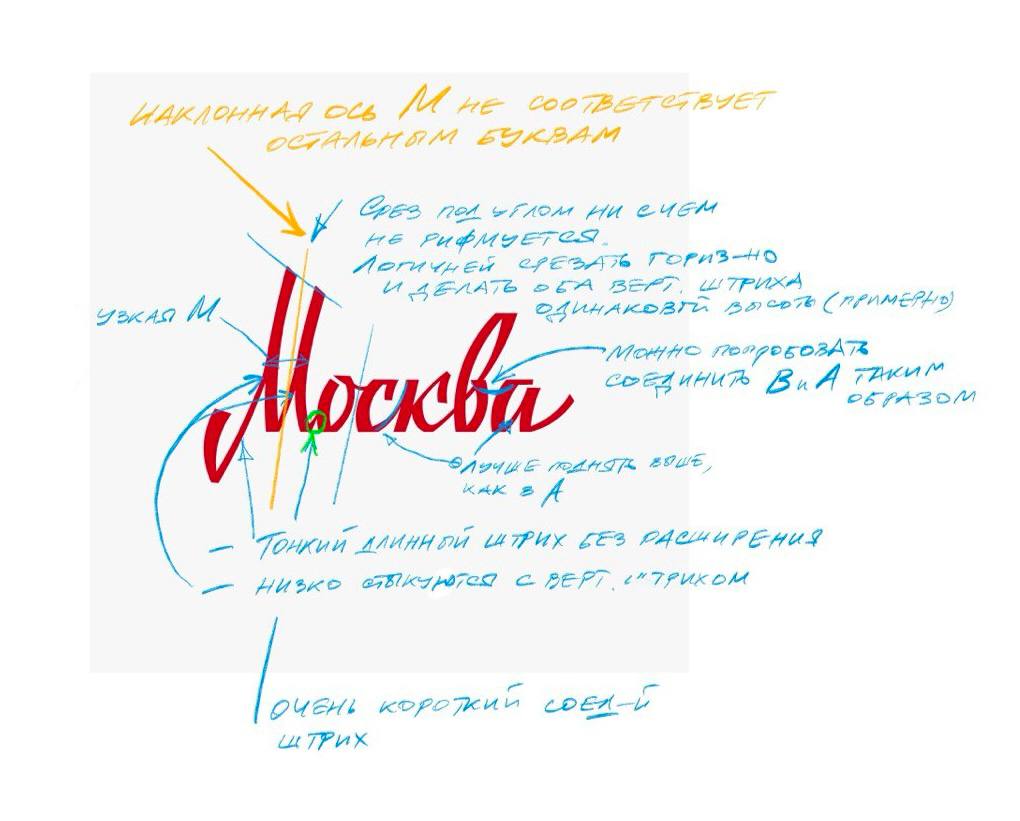 НАКЛОННАЯ ОСЬ М НЕ СООТВЕТСТВУЕТ
ОСТАЛЬНЫМ БУКВАМ
СРЕЗ ПОД УГЛОМ НИ С ЧЕМ
НЕ РИФМУЕТСЯ.
ЛОГИЧНЕЙ СРЕЗАТЬ ГОРИЗ-НО
И ДЕЛАТЬ ОБА ВЕРТ. ШТРИХА
ОДИНАКОВОЙ ВЫСОТЫ (ПРИМЕРНО)
УЗКАЯ М
МОЖНО ПОПРОБОВАТЬ
СОЕДИНИТЬ В И А ТАКИМ
ОБРАЗОМ
Москва
ЛУЧШЕ ПОДНЯТЬ ВЫШЕ,
КАК В А
– ТОНКИЙ ДЛИННЫЙ ШТРИХ БЕЗ РАСШИРЕНИЯ
– НИЗКО СТЫКУЮТСЯ С ВЕРТ. ШТРИХОМ
ОЧЕНЬ КОРОТКИЙ СОЕД-Й
ШТРИХ